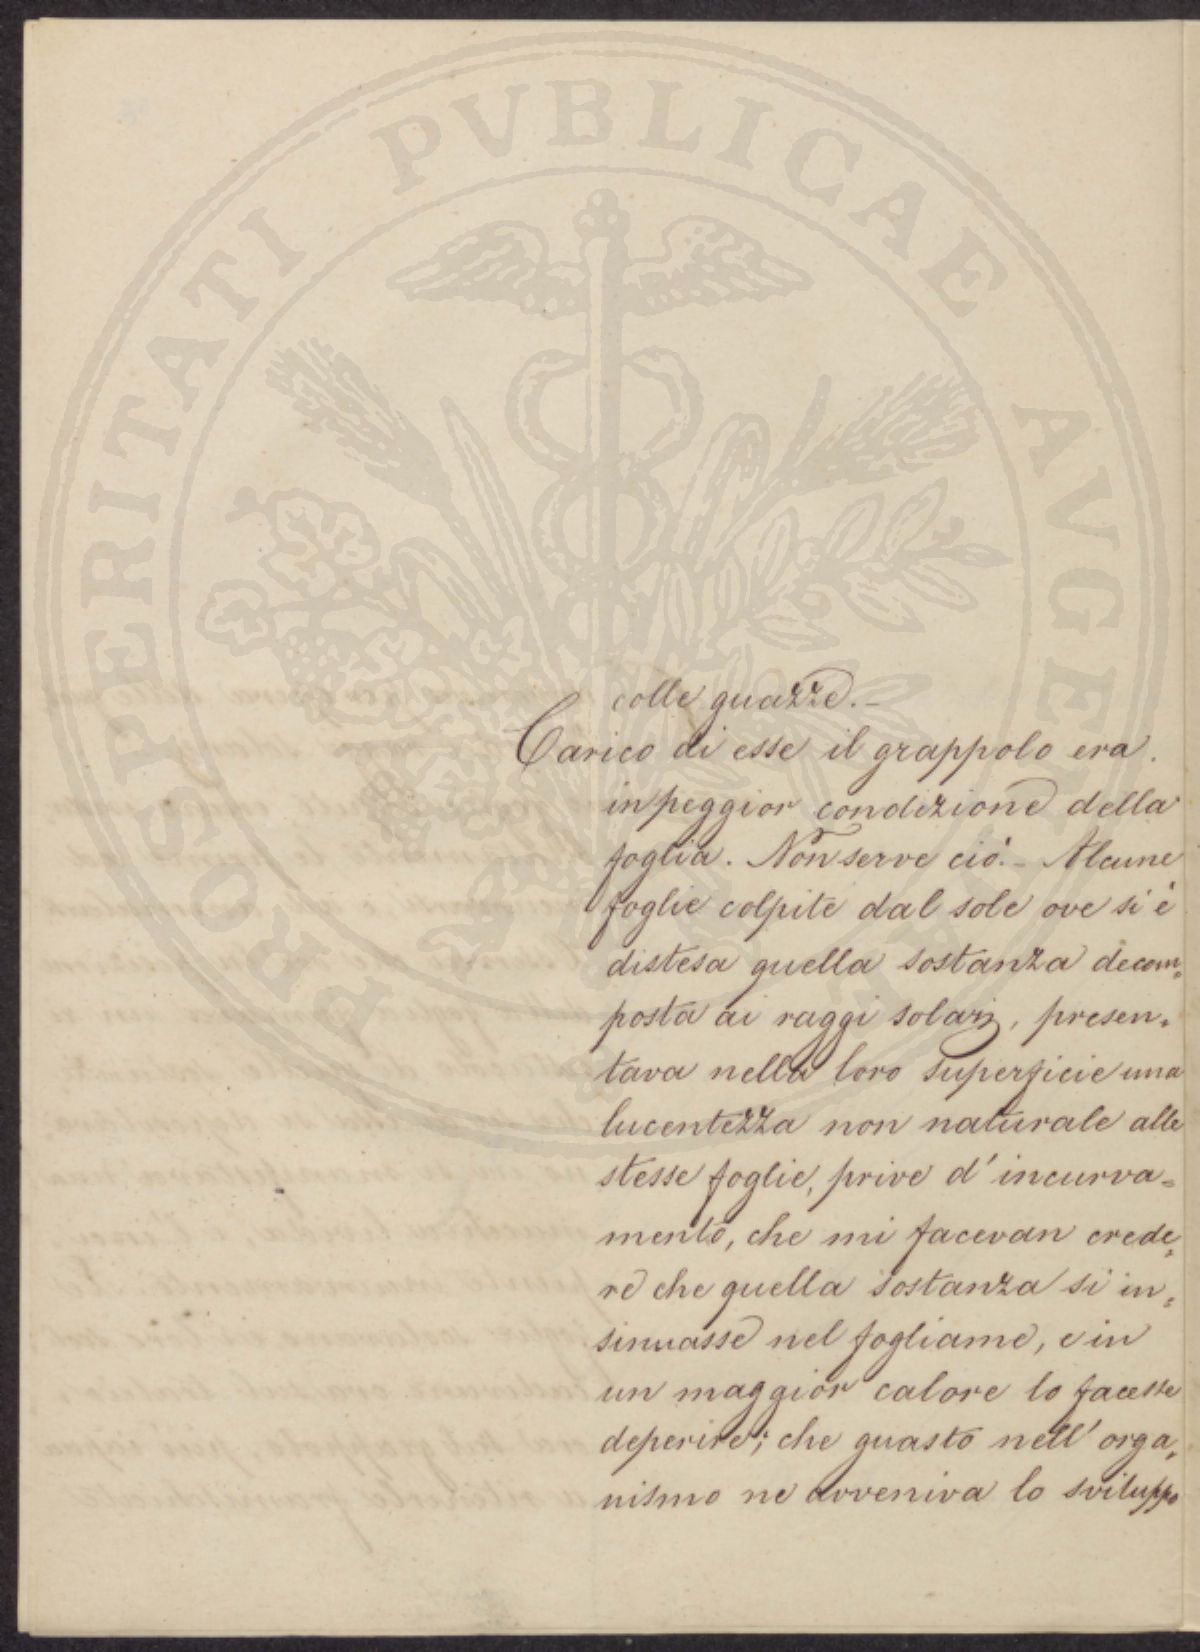 PROSPERITATI PVBLICAE AVGENDAE
colle guazze.-
Carico di esse il grappolo era
in peggior condizione della
foglia. Non serve ciò.- Alcune
foglie colpite dal sole ove si è
distesa quella sostanza decom=
posta ai raggi solari, presen=
tava nella loro superficie una
lucentezza non naturale alle
stesse foglie, prive d'incurva=
mento, che mi facevan crede=
re che quella sostanza si in=
sinuasse nel fogliame, e in
un maggior calore lo facesse
deperire; che guasto nell'orga=
nismo ne avveniva lo sviluppo